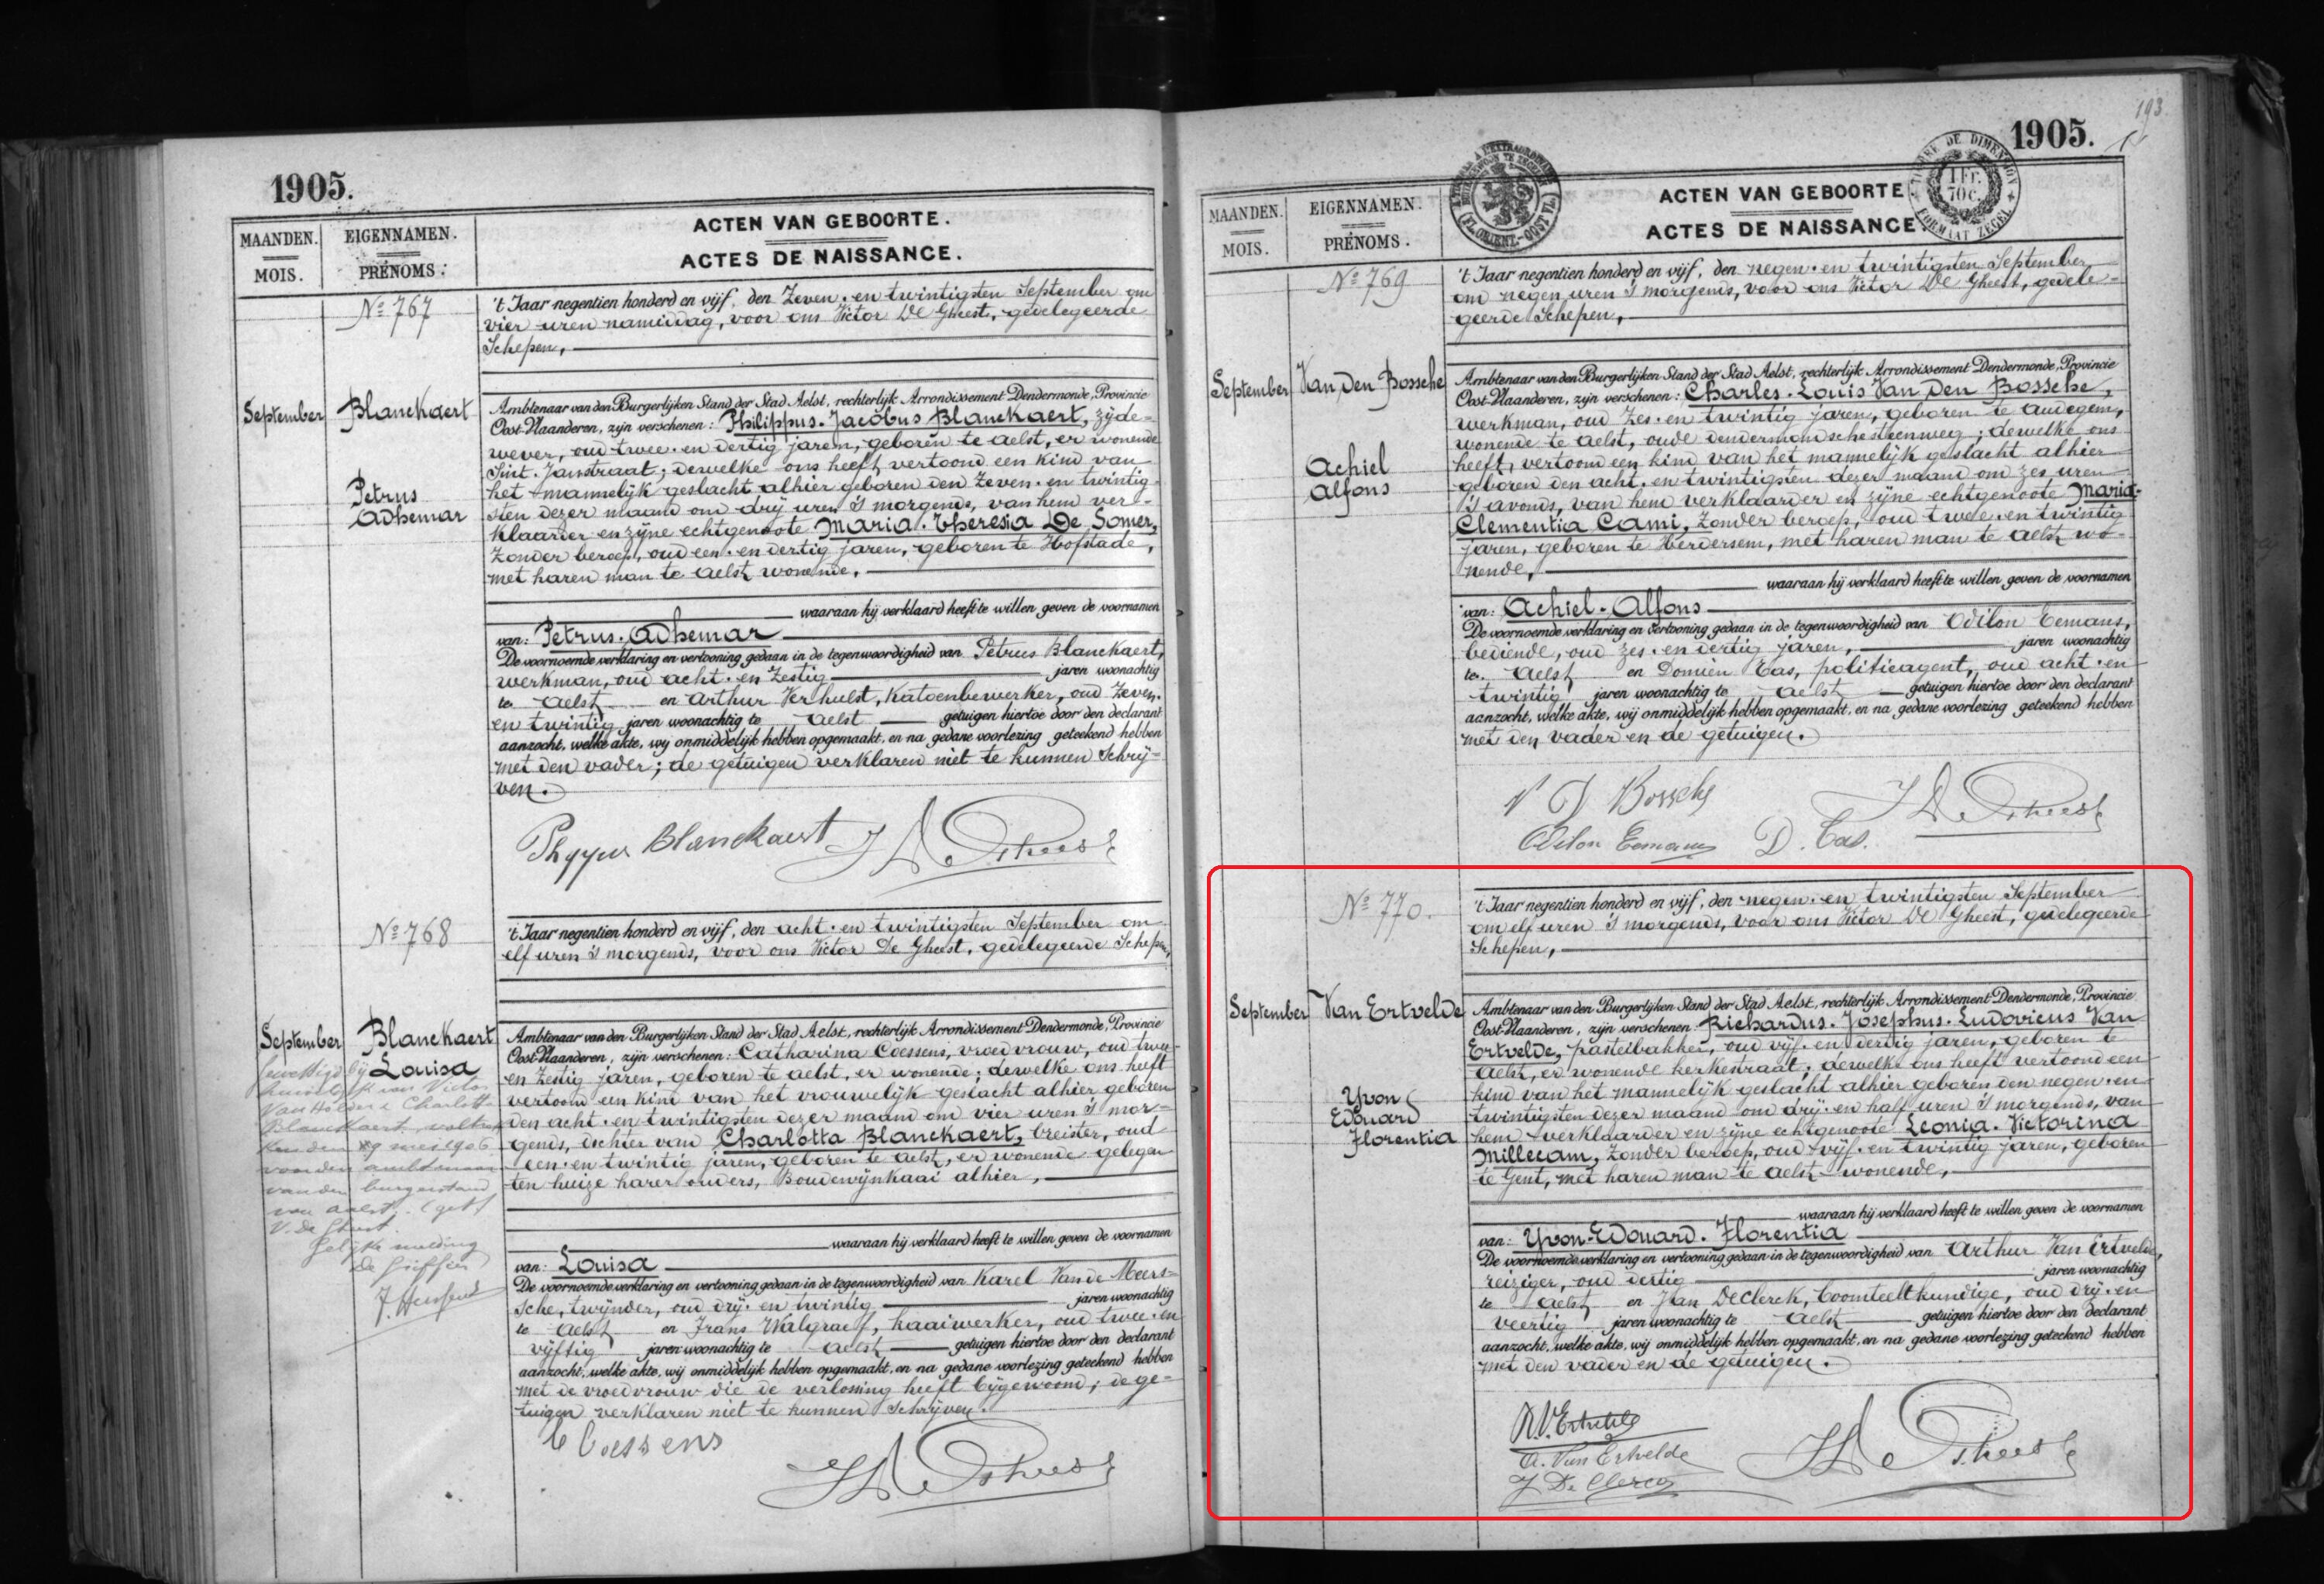 1905.
MAANDEN.
MOIS.
EIGENNAMEN.
PRÉNOMS.
ACTEN VAN GEBOORTE.
ACTES DE NAISSANCE.
No 767
't Jaar negentien honderd en vijf, den Zeven-en twintigsten September om
vier uren namiddag, voor ons Victor De Gheest, gedelegeerde
Schepen,
September
Blanckaert
Petrus
Adhemar
Ambtenaar van den Burgerlijken Stand der Stad Aelst, rechterlijk Arrondissement Dendermonde, Provincie
Oost-Vlaanderen, zijn verschenen: Philippus-Jacobus Blanckaert, zijde-
wever, oud twee-en dertig jaren, geboren te Aelst, er wonende
Sint-Janstraat; dewelke ons heeft vertoond een kind van
het mannelijk geslacht alhier geboren den zeven-en twintig-
sten dezer maand om drij uren 's morgends, van hem ver-
klaarder en zijne echtgenoote Maria-Theresia De Somer,
zonder beroep, oud een-en dertig jaren, geboren te Hofstade,
met haren man te Aelst wonende,
waaraan hij verklaard heeft te willen geven de voornamen
van: Petrus-Adhemar
De voornoemde verklaring en vertooning gedaan in de tegenwoordigheid van Petrus Blanckaert,
werkman, oud acht-en zestig jaren woonachtig
te Aelst en Arthur Verhulst, Katoenbewerker, oud zeven-
en twintig jaren woonachtig te Aelst getuigen hiertoe door den declarant
aanzocht, welke akte, wij onmiddelijk hebben opgemaakt, en na gedane voorlezing geteekend hebben
met den vader; de getuigen verklaren niet te kunnen schrij-
ven.
Blanckaert De Gheest
No 768
't Jaar negentien honderd en vijf, den acht-en twintigsten September om
elf uren 's morgends, voor ons Victor De Gheest, gedelegeerde Schepen,
September
Blanckaert
Louisa
Ambtenaar van den Burgerlijken Stand der Stad Aelst, rechterlijk Arrondissement Dendermonde, Provincie
Oost-Vlaanderen, zijn verschenen: Catharina Coessens, vroedvrouw, oud twee-
en zestig jaren, geboren te Aelst, er wonende; dewelke ons heeft
vertoond een kind van het vrouwelijk geslacht alhier geboren
den acht-en twintigsten dezer maand om vier uren 's mor-
gends, dochter van Charlotta Blanckaert, breister, oud
een-en twintig jaren, geboren te Aelst, er wonende gelegen
ten huize harer ouders, Boudewijnkaai alhier,
waaraan hij verklaard heeft te willen geven de voornamen
van: Louisa
De voornoemde verklaring en vertooning gedaan in de tegenwoordigheid van Karel Van de Meers-
sche, twijnder, oud drij-en twintig jaren woonachtig
te Aelst en Frans Walgraef, kaaiwerker, oud twee-en
vijftig jaren woonachtig te Aelst getuigen hiertoe door den declarant
aanzocht, welke akte, wij onmiddelijk hebben opgemaakt, en na gedane voorlezing geteekend hebben
met de vroedvrouw die de verlossing heeft bijgewoond; de ge-
tuigen verklaren niet te kunnen schrijven.
C Coessens
De Gheest
van Victor
Van Holder & Charlotte
Blanckaert, voltrok-
ken den 19 mei 1906
voor den ambtenaar
van den burgerstand
van Aalst. (get.)
V. De Gheest.
Gelijke melding
De Griffier
193
1905.
TIMBRE DE DIMENSION
1 Fr.
70 c.
FORMAAT ZEGEL
MAANDEN.
MOIS.
EIGENNAMEN.
PRÉNOMS.
ACTEN VAN GEBOORTE
ACTES DE NAISSANCE
No 769
't Jaar negentien honderd en vijf, den negen-en twintigsten September
om negen uren 's morgends, voor ons Victor De Gheest, gedele-
geerde Schepen,
September
Van Den Bossche
Achiel
Alfons
Ambtenaar van den Burgerlijken Stand der Stad Aelst, rechterlijk Arrondissement Dendermonde, Provincie
Oost-Vlaanderen, zijn verschenen: Charles-Louis Van Den Bossche,
werkman, oud zes-en twintig jaren, geboren te Audegem,
wonende te Aelst, oude dendermondschesteenweg; dewelke ons
heeft vertoond een kind van het mannelijk geslacht alhier
geboren den acht-en twintigsten dezer maand om zes uren
's avonds, van hem verklaarder en zijne echtgenoote Maria-
Clementia Cami, zonder beroep, oud twee-en twintig
jaren, geboren te Herdersem, met haren man te Aelst wo-
nende,
waaraan hij verklaard heeft te willen geven de voornamen
van: Achiel-Alfons
De voornoemde verklaring en vertooning gedaan in de tegenwoordigheid van Odilon Eemans,
bediende, oud zes-en dertig jaren, jaren woonachtig
te Aelst en Domien Cas, politieagent, oud acht-en
twintig jaren woonachtig te Aelst getuigen hiertoe door den declarant
aanzocht, welke akte, wij onmiddelijk hebben opgemaakt, en na gedane voorlezing geteekend hebben
met den vader en de getuigen.
V D Bossche De Gheest
Odilon Eemans D. Cas.
No 770.
't Jaar negentien honderd en vijf, den negen-en twintigsten September
om elf uren 's morgends, voor ons Victor De Gheest, gedelegeerde
Schepen,
September
Van Ertvelde
Yvon
Edouard
Florentia
Ambtenaar van den Burgerlijken Stand der Stad Aelst, rechterlijk Arrondissement Dendermonde, Provincie
Oost-Vlaanderen, zijn verschenen: Richardus-Josephus-Ludovicus Van
Ertvelde, pasteibakker, oud vijf-en dertig jaren, geboren te
Aelst, er wonende Kerkestraat; dewelke ons heeft vertoond een
kind van het mannelijk geslacht alhier geboren den negen-en
twintigsten dezer maand om drij-en half uren 's morgends, van
hem verklaarder en zijne echtgenoote Leonia-Victorina
Millecam, zonder beroep, oud vijf-en twintig jaren, geboren
te Gent, met haren man te Aelst wonende,
waaraan hij verklaard heeft te willen geven de voornamen
van: Yvon-Edouard-Florentia
De voornoemde verklaring en vertooning gedaan in de tegenwoordigheid van Arthur Van Ertvelde,
reiziger, oud dertig jaren woonachtig
te Aelst en Jan De Clerck, boomteeltkundige, oud drij-en
veertig jaren woonachtig te Aelst getuigen hiertoe door den declarant
aanzocht, welke akte, wij onmiddelijk hebben opgemaakt, en na gedane voorlezing geteekend hebben
met den vader en de getuigen.
R. V. Ertvelde
A. Van Ertvelde
J De Clercq
De Gheest